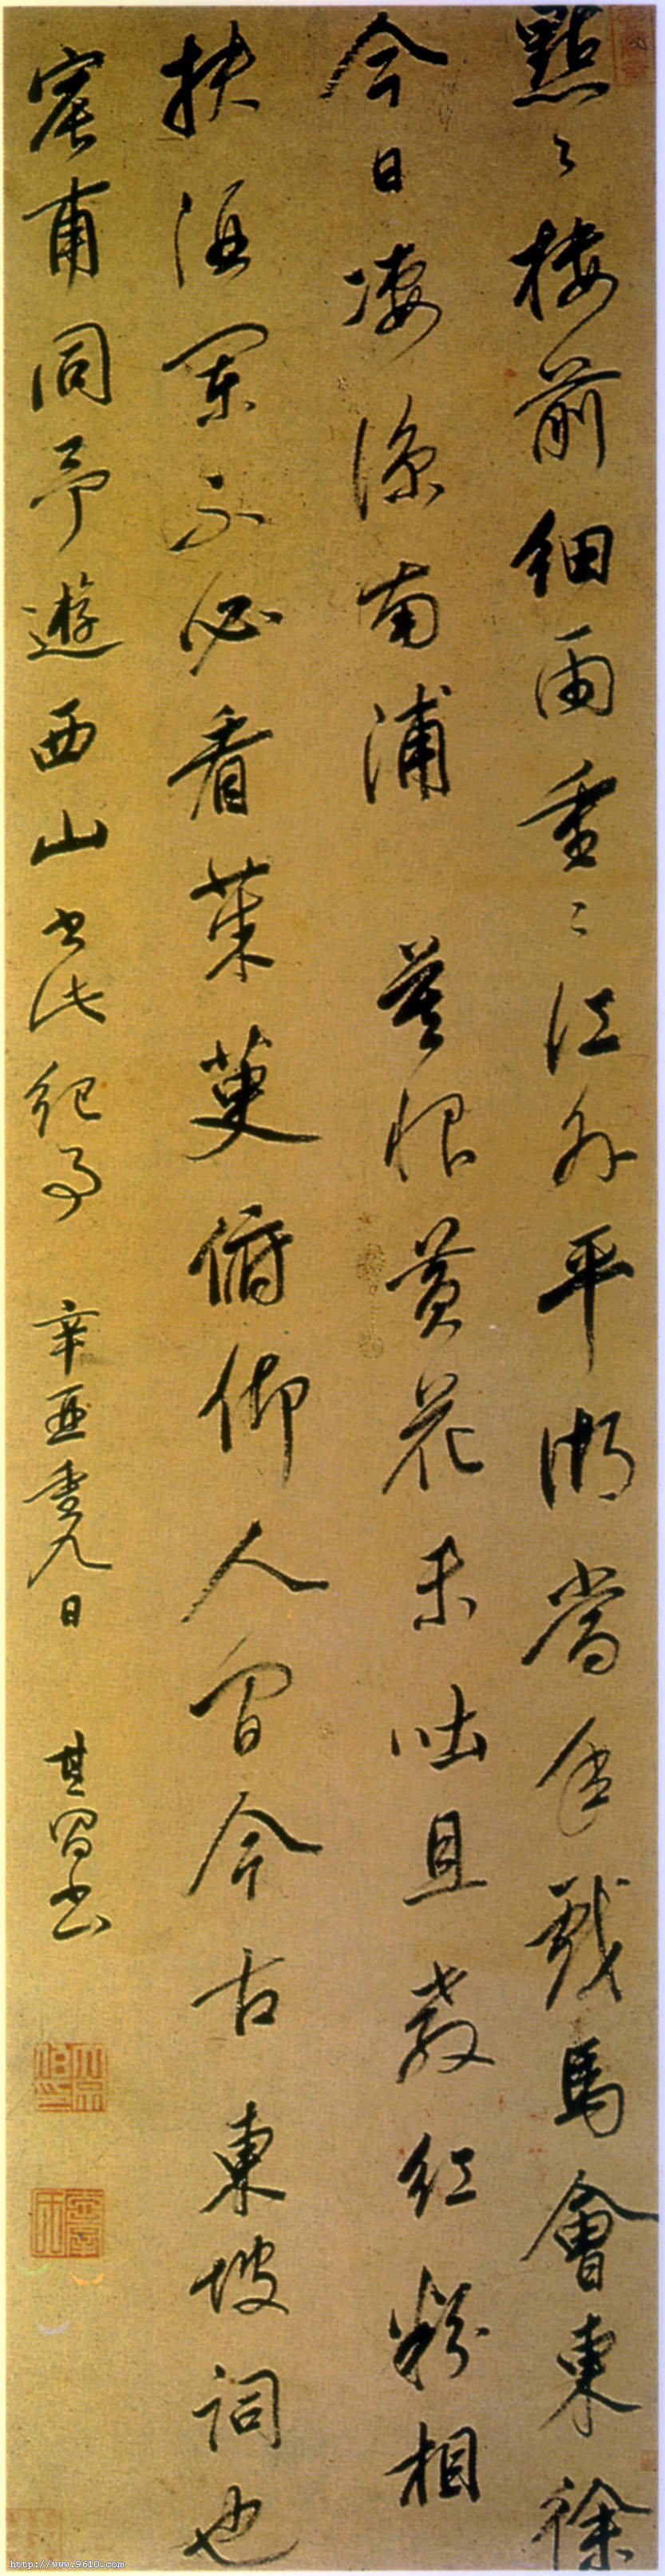 點々樓前細雨重々江外平湖當年戲馬會東徐
今日凄涼南浦 莫恨黃花未吐且教紅粉相
扶酒闌不必看茱萸俯仰人間今古東坡詞也
甫同予遊西山書此紀事 辛亥重九日 其昌書
http://www.9610.com